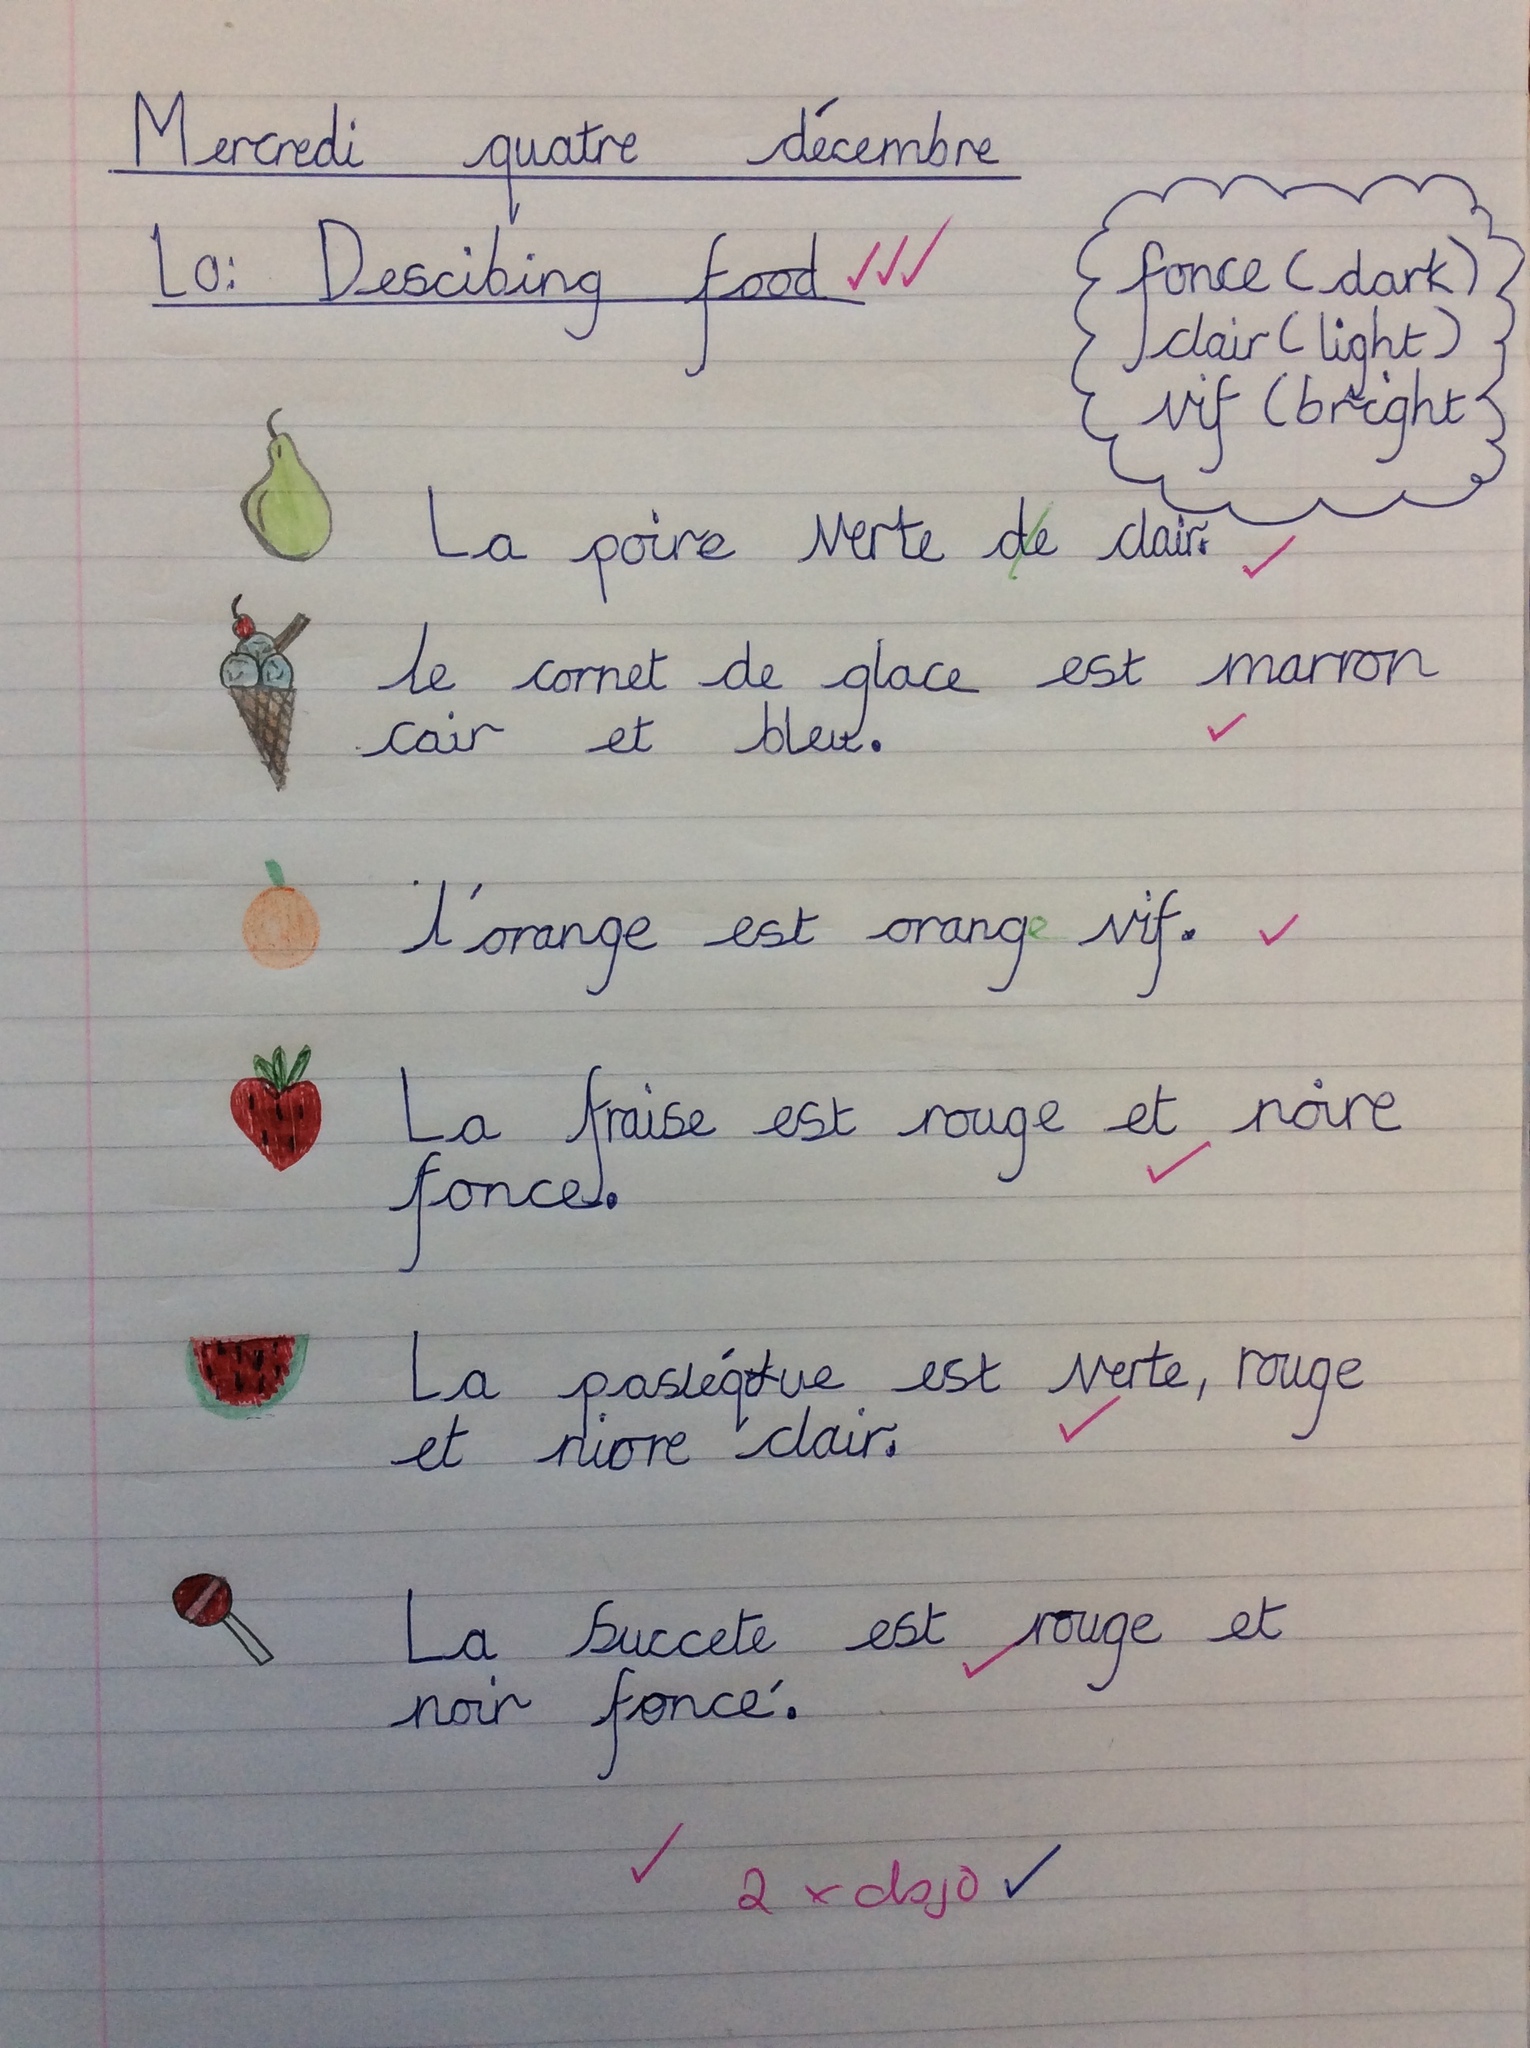 Mercredi quatre décembre
Lo: Descibing food
fonce (dark)
clair (light)
vif (bright
La poire verte de clair.
le cornet de glace est marron
cair et bleu.
l'orange est orange vif.
La fraise est rouge et noire
fonce.
La pastéque est verte, rouge
et niore clair.
La succete est rouge et
noir foncé.
2 x dojo